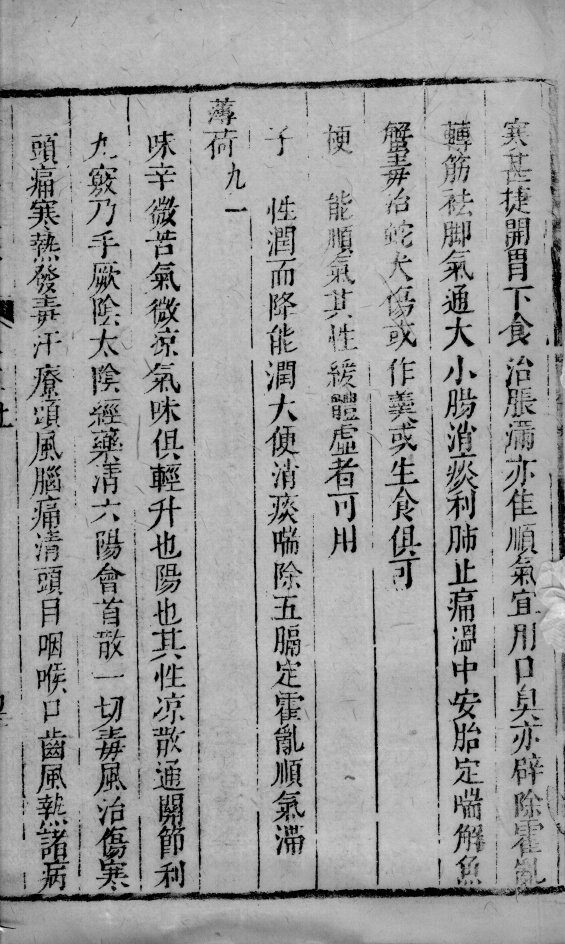 寒甚捷開胃下食治脹滿亦佳順氣宜用口臭亦辟除霍亂
轉筋祛脚氣通大小腸消痰利肺止痛溫中安胎定喘解魚
蟹毒治蛇犬傷或作羹或生食俱可
梗 能順氣其性緩體虛者可用
子 性潤而降能潤大便消痰喘除五膈定霍亂順氣滯
薄荷九一
味辛微苦氣微凉氣味俱輕升也陽也其性凉散通關節利
九竅乃手厥陰太陰經藥清六陽會首散一切毒風治傷寒
頭痛寒熱發毒汗療頭風腦痛清頭目咽喉口齒風熱諸病